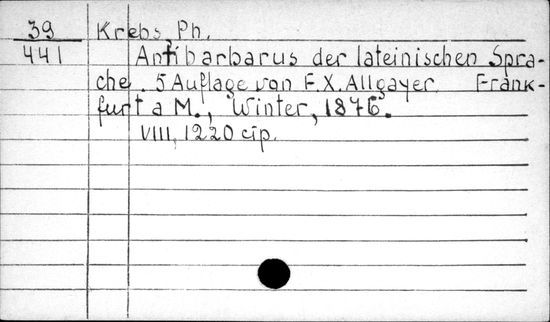 39 Krebs, Ph.
441 Antibarbarus der lateinischen Spra-
che. 5 Auflage von F. X. Allgayer. Frank-
furt a M., Winter, 1876.
VIII, 1220 стр.